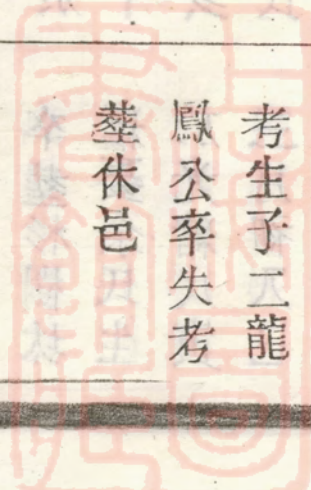 考生子二龍
鳳公卒失考
塟休邑